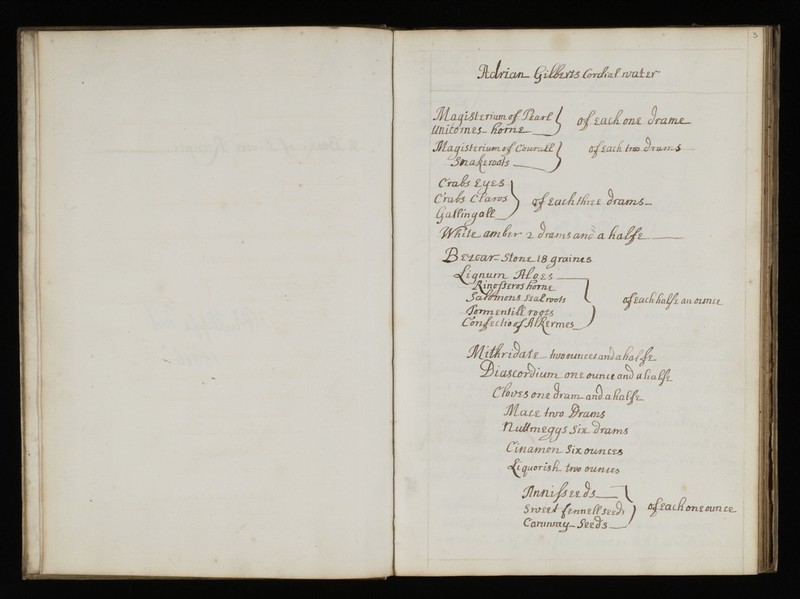 3
Adrian Gilberts Cordial water
Magisterium of Pearl
Unicornes horne
of each one drame
Magisterium of Courall
Snakeroots
of each two drams
Crabs Eyes
Crabs Claws
Gallingall
of each three drams
White amber 2 drams and a halfe
Bezoar Stone 18 graines
Lignum Aloes
Rinosseros horne
Salomons seal roots
Tormentill roots
Confectio of Alkermes
of each halfe an ounce
Mithridate two ounces and a halfe
Diascordium one ounce and a halfe
Cloves one dram and a halfe
Mace two Drams
Nuttmeggs six drams
Cinamon Six ounces
Liquorish two ounces
Annisseeds
Sweet fennell seeds
Carraway Seeds
of each one ounce